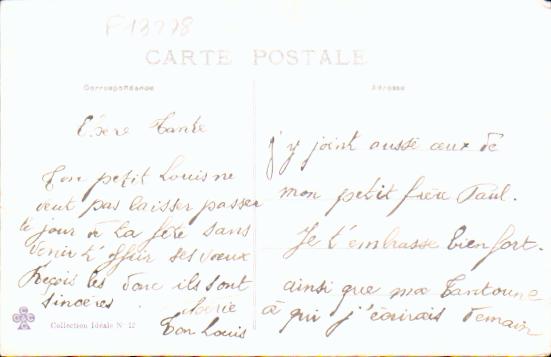 F13278
CARTE POSTALE
Correspondance
Adresse
Chere Tante
Ton petit Louis ne
veut pas laisser passer
le jour de ta fête sans
venir t'offrir ses vœux
Reçois les donc ils sont
sincères.
Ton Louis
Collection Idéale N 12
j'y joint aussi ceux de
mon petit frère Paul.
Je t'embrasse bien fort.
ainsi que ma Tantoune
à qui j'écrirais demain